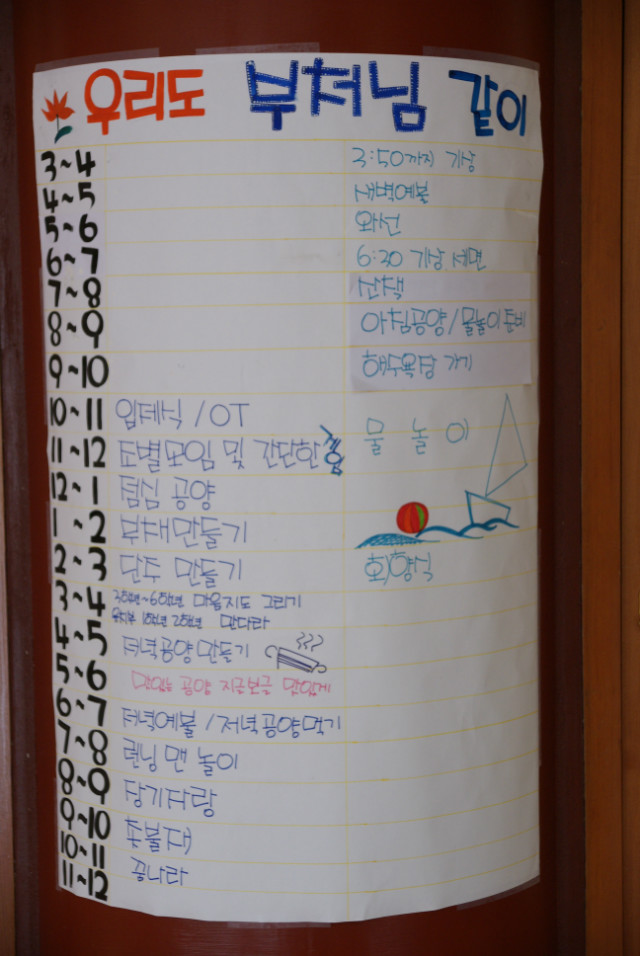 우리도 부처님 같이
3~4 3:50까지 기상
4~5 새벽예불
5~6 와선
6~7 6:30 기상 세면
7~8 산책
8~9 아침공양/물놀이 준비
9~10 해수욕장 가기
10~11 입제식/OT 물 놀 이
11~12 조별모임 및 간단한
12~1 점심 공양
1~2 부채만들기
2~3 단주 만들기 회향식
3~4 3학년~6학년 마음지도 그리기
유치부 1학년 2학년 만다라
4~5 저녁공양만들기
5~6 맛있는 공양 지글보글 맛있게
6~7 저녁예불/저녁공양먹기
7~8 런닝 맨 놀이
8~9 장기자랑
9~10 촛불재
10~11 꿈나라
11~12